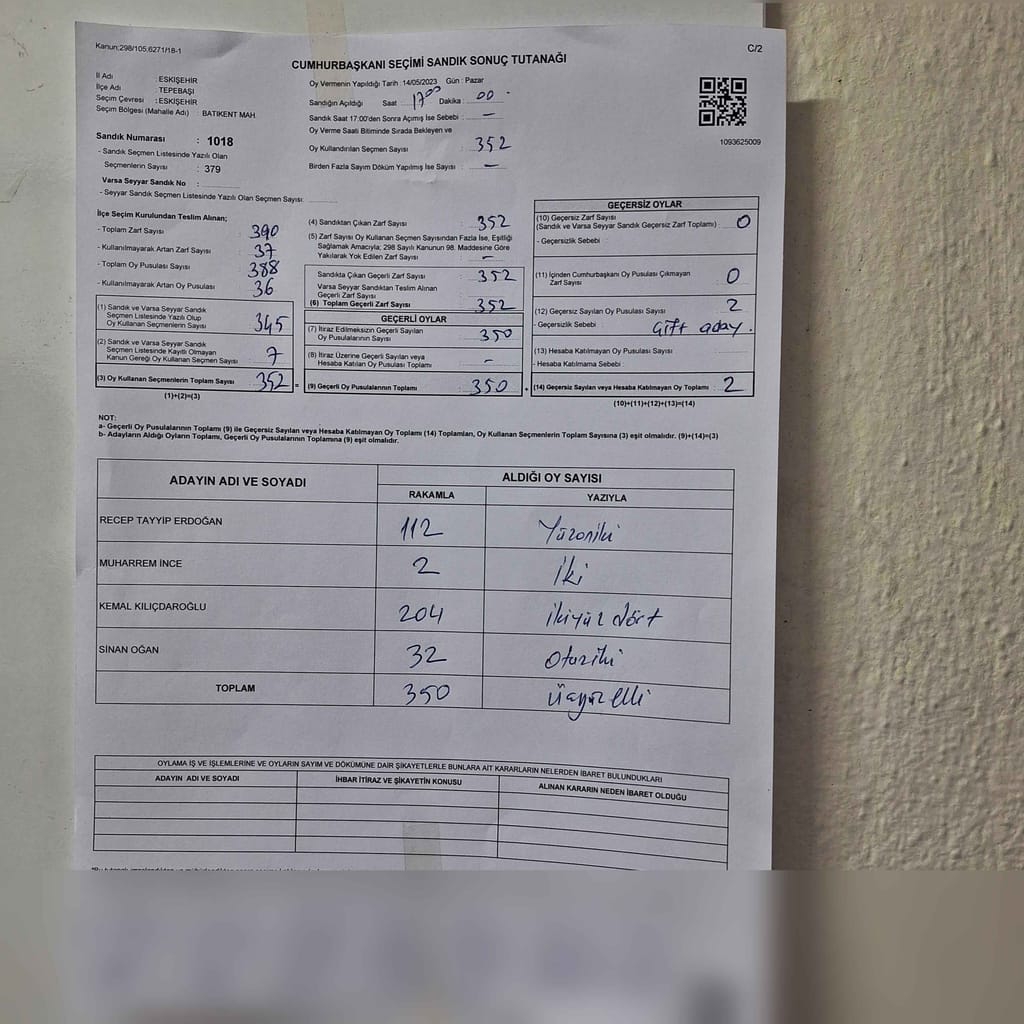 Kanun:298/105,6271/18-1
C/2
CUMHURBAŞKANI SEÇİMİ SANDIK SONUÇ TUTANAĞI
İl Adı : ESKİŞEHİR
İlçe Adı : TEPEBAŞI
Seçim Çevresi : ESKİŞEHİR
Seçim Bölgesi (Mahalle Adı) : BATIKENT MAH
Sandık Numarası : 1018
- Sandık Seçmen Listesinde Yazılı Olan
Seçmenlerin Sayısı : 379
Varsa Seyyar Sandık No :
- Seyyar Sandık Seçmen Listesinde Yazılı Olan Seçmen Sayısı:
Oy Vermenin Yapıldığı Tarih :14/05/2023 Gün : Pazar
Sandığın Açıldığı Saat 17 00 Dakika : 00
Sandık Saat 17:00'den Sonra Açımış İse Sebebi : -
Oy Verme Saati Bitiminde Sırada Bekleyen ve
Oy Kullandırılan Seçmen Sayısı : 352
Birden Fazla Sayım Döküm Yapılmış İse Sayısı : -
1093625009
İlçe Seçim Kurulundan Teslim Alınan;
- Toplam Zarf Sayısı : 390
- Kullanılmayarak Artan Zarf Sayısı : 37
- Toplam Oy Pusulası Sayısı : 388
- Kullanılmayarak Artan Oy Pusulası : 36
(1) Sandık ve Varsa Seyyar Sandık
Seçmen Listesinde Yazılı Olup
Oy Kullanan Seçmenlerin Sayısı : 345
(2) Sandık ve Varsa Seyyar Sandık
Seçmen Listesinde Kayıtlı Olmayan
Kanun Gereği Oy Kullanan Seçmen Sayısı : 7
(3) Oy Kullanan Seçmenlerin Toplam Sayısı : 352 =
(1)+(2)=(3)
(4) Sandıktan Çıkan Zarf Sayısı : 352
(5) Zarf Sayısı Oy Kullanan Seçmen Sayısından Fazla İse, Eşitliği
Sağlamak Amacıyla; 298 Sayılı Kanunun 98. Maddesine Göre
Yakılarak Yok Edilen Zarf Sayısı : -
Sandıkta Çıkan Geçerli Zarf Sayısı : 352
Varsa Seyyar Sandıktan Teslim Alınan
Geçerli Zarf Sayısı :
(6) Toplam Geçerli Zarf Sayısı : 352
GEÇERLİ OYLAR
(7) İtiraz Edilmeksizin Geçerli Sayılan
Oy Pusulalarının Sayısı : 350
(8) İtiraz Üzerine Geçerli Sayılan veya
Hesaba Katılan Oy Pusulası Toplamı : -
(9) Geçerli Oy Pusulalarının Toplamı : 350 +
GEÇERSİZ OYLAR
(10) Geçersiz Zarf Sayısı
(Sandık ve Varsa Seyyar Sandık Geçersiz Zarf Toplamı) : 0
- Geçersizlik Sebebi :
(11) İçinden Cumhurbaşkanı Oy Pusulası Çıkmayan
Zarf Sayısı : 0
(12) Geçersiz Sayılan Oy Pusulası Sayısı : 2
- Geçersizlik Sebebi : Çift aday.
(13) Hesaba Katılmayan Oy Pusulası Sayısı :
- Hesaba Katılmama Sebebi :
(14) Geçersiz Sayılan veya Hesaba Katılmayan Oy Toplamı : 2
(10)+(11)+(12)+(13)=(14)
NOT:
a- Geçerli Oy Pusulalarının Toplamı (9) ile Geçersiz Sayılan veya Hesaba Katılmayan Oy Toplamı (14) Toplamları, Oy Kullanan Seçmenlerin Toplam Sayısına (3) eşit olmalıdır. (9)+(14)=(3)
b- Adayların Aldığı Oyların Toplamı, Geçerli Oy Pusulalarının Toplamına (9) eşit olmalıdır.
ADAYIN ADI VE SOYADI ALDIĞI OY SAYISI
RAKAMLA YAZIYLA
RECEP TAYYİP ERDOĞAN 112 Yüzoniki
MUHARREM İNCE 2 iki
KEMAL KILIÇDAROĞLU 204 ikiyüz dört
SİNAN OĞAN 32 Otuziki
TOPLAM 350 Üçyüz elli
OYLAMA İŞ VE İŞLEMLERİNE VE OYLARIN SAYIM VE DÖKÜMÜNE DAİR ŞİKAYETLERLE BUNLARA AİT KARARLARIN NELERDEN İBARET BULUNDUKLARI
ADAYIN ADI VE SOYADI İHBAR İTİRAZ VE ŞİKAYETİN KONUSU ALINAN KARARIN NEDEN İBARET OLDUĞU